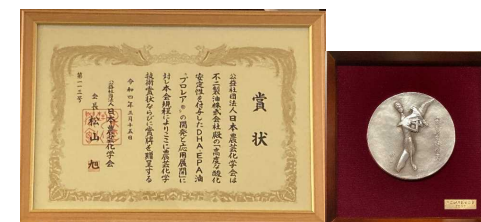 賞状
公益社団法人日本農芸化学会は
不二製油株式会社殿の「高度な酸化
安定性を付与したDHA、EPA油
“プロレア®”の開発と応用展開に
対し本会規程によりここに農芸化学
技術賞状ならびに賞牌を贈呈する
令和四年三月十五日
公益社団法人日本農芸化学会
会長 松山 旭